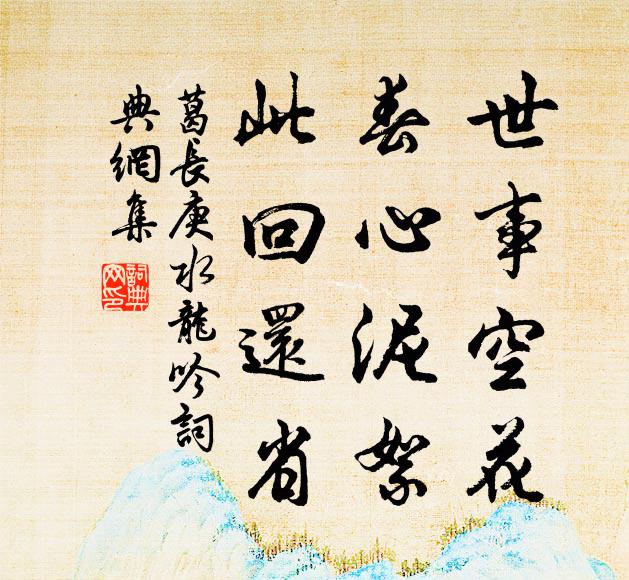 世事空花
春心泥絮
此回還省
葛長庚水龍吟詞
典網集
詞典網印